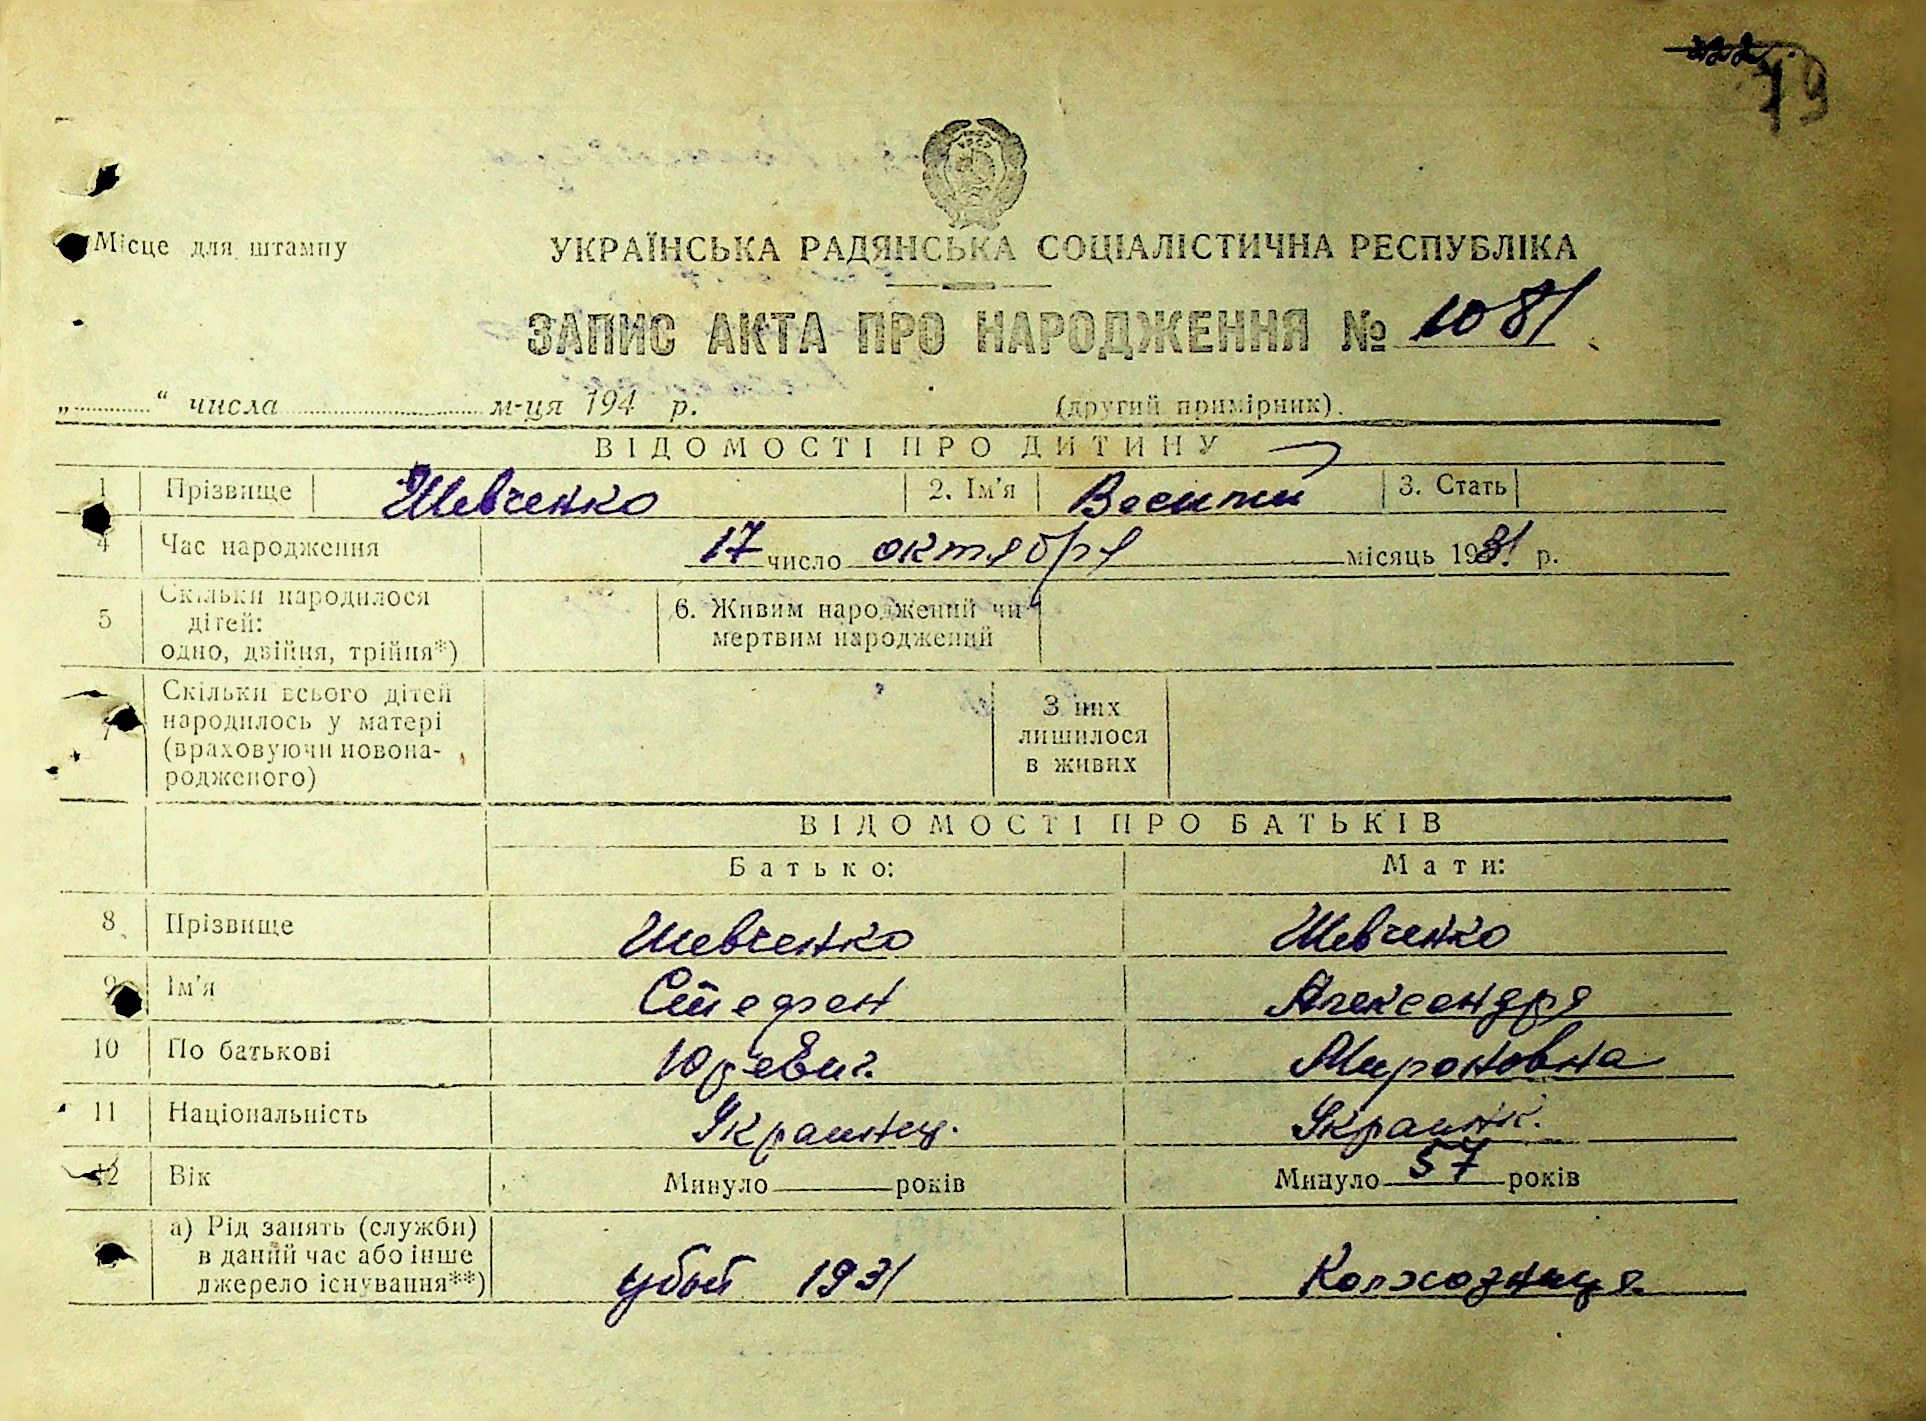 19
Місце для штампу
УКРАЇНСЬКА РАДЯНСЬКА СОЦІАЛІСТИЧНА РЕСПУБЛІКА
ЗАПИС АКТА ПРО НАРОДЖЕННЯ № 1081
„ “ числа м-ця 194 р. (другий примірник).
ВІДОМОСТІ ПРО ДИТИНУ
1 Прізвище Шевченко 2. Ім'я Василий 3. Стать
4 Час народження 17 число октября місяць 1931 р.
5 Скільки народилося дітей: одно, двійня, трійня*) 6. Живим народжений чи мертвим народжений
7 Скільки всього дітей народилось у матері (враховуючи новонародженого) З них лишилося в живих
ВІДОМОСТІ ПРО БАТЬКІВ
Батько: Мати:
8 Прізвище Шевченко Шевченко
9 Ім'я Стефан Александра
10 По батькові Юревич. Мироновна
11 Національність Украинец. Украинк.
12 Вік Минуло років Минуло 57 років
а) Рід занять (служби) в даний час або інше джерело існування**) 1931 Колхозница.